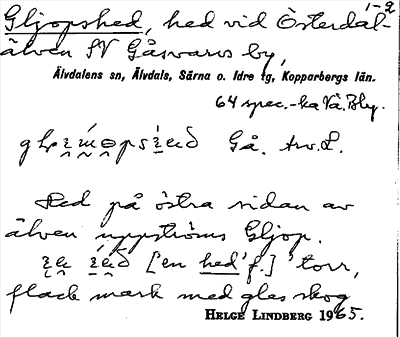 1-2
Gljopshed, hed vid Österdal-
älven SV Gåsvarvs by,
Älvdalens sn, Älvdals, Särna o. Idre tg, Kopparbergs län.
64 spec.-ka Vä. Bly.
Gå.
Hed på östra sidan av
älven uppströms Gljop.
['en hed' f.] 'torr,
flack mark med gles skog
HELGE LINDBERG 1965.